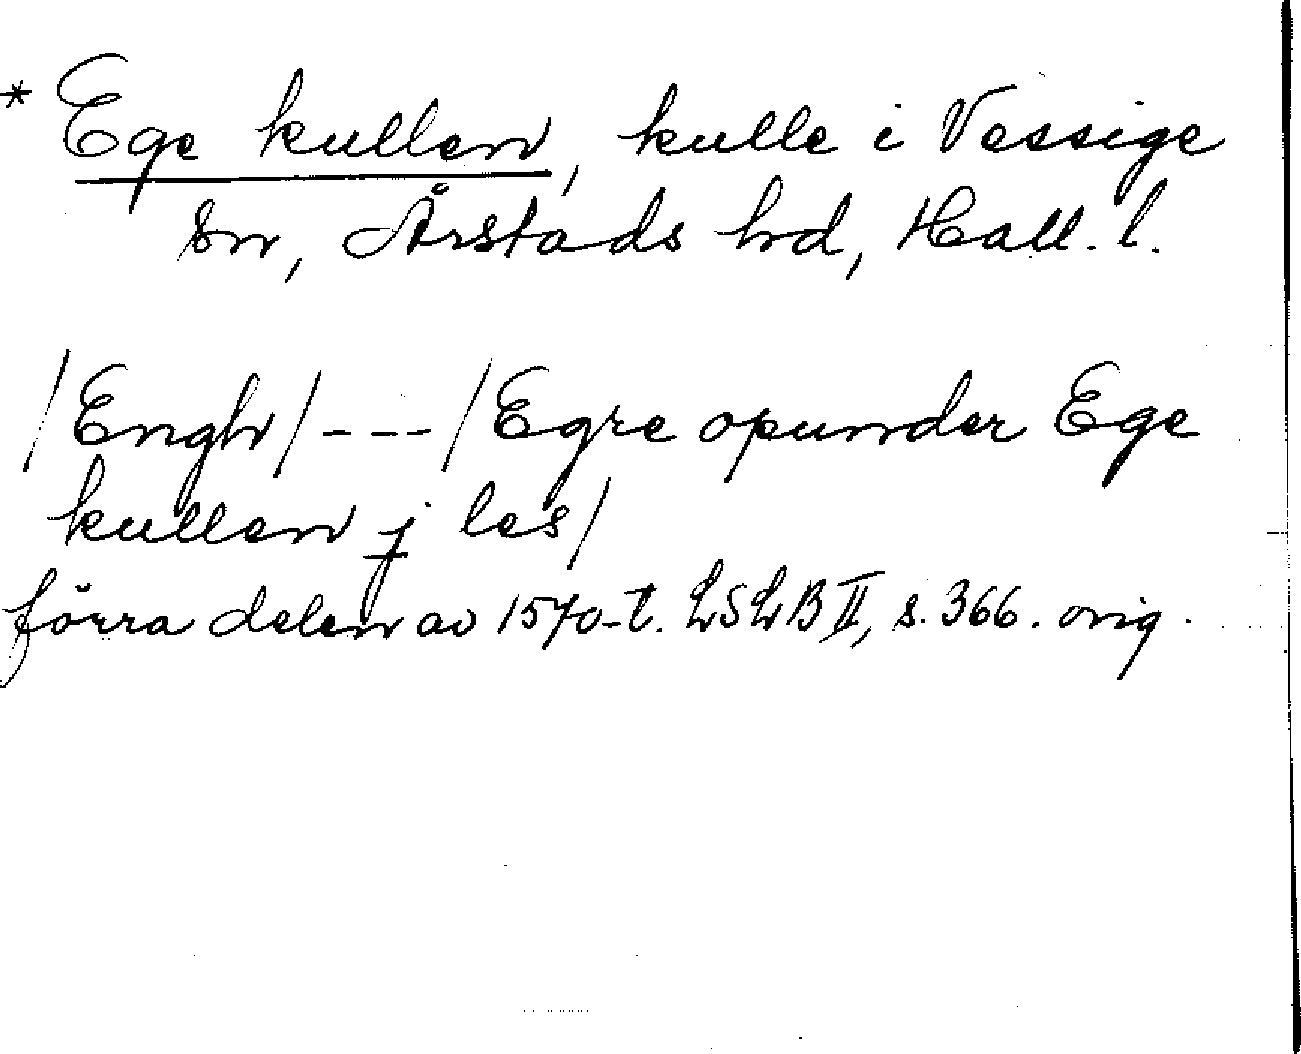 * Ege kullen, kulle i Vessige
sn, Årstads hd, Hall. l.
/Engh/---/Egre opunder Ege
kullen j les/
förra delen av 1570-t. LSLB II, s. 366. orig.